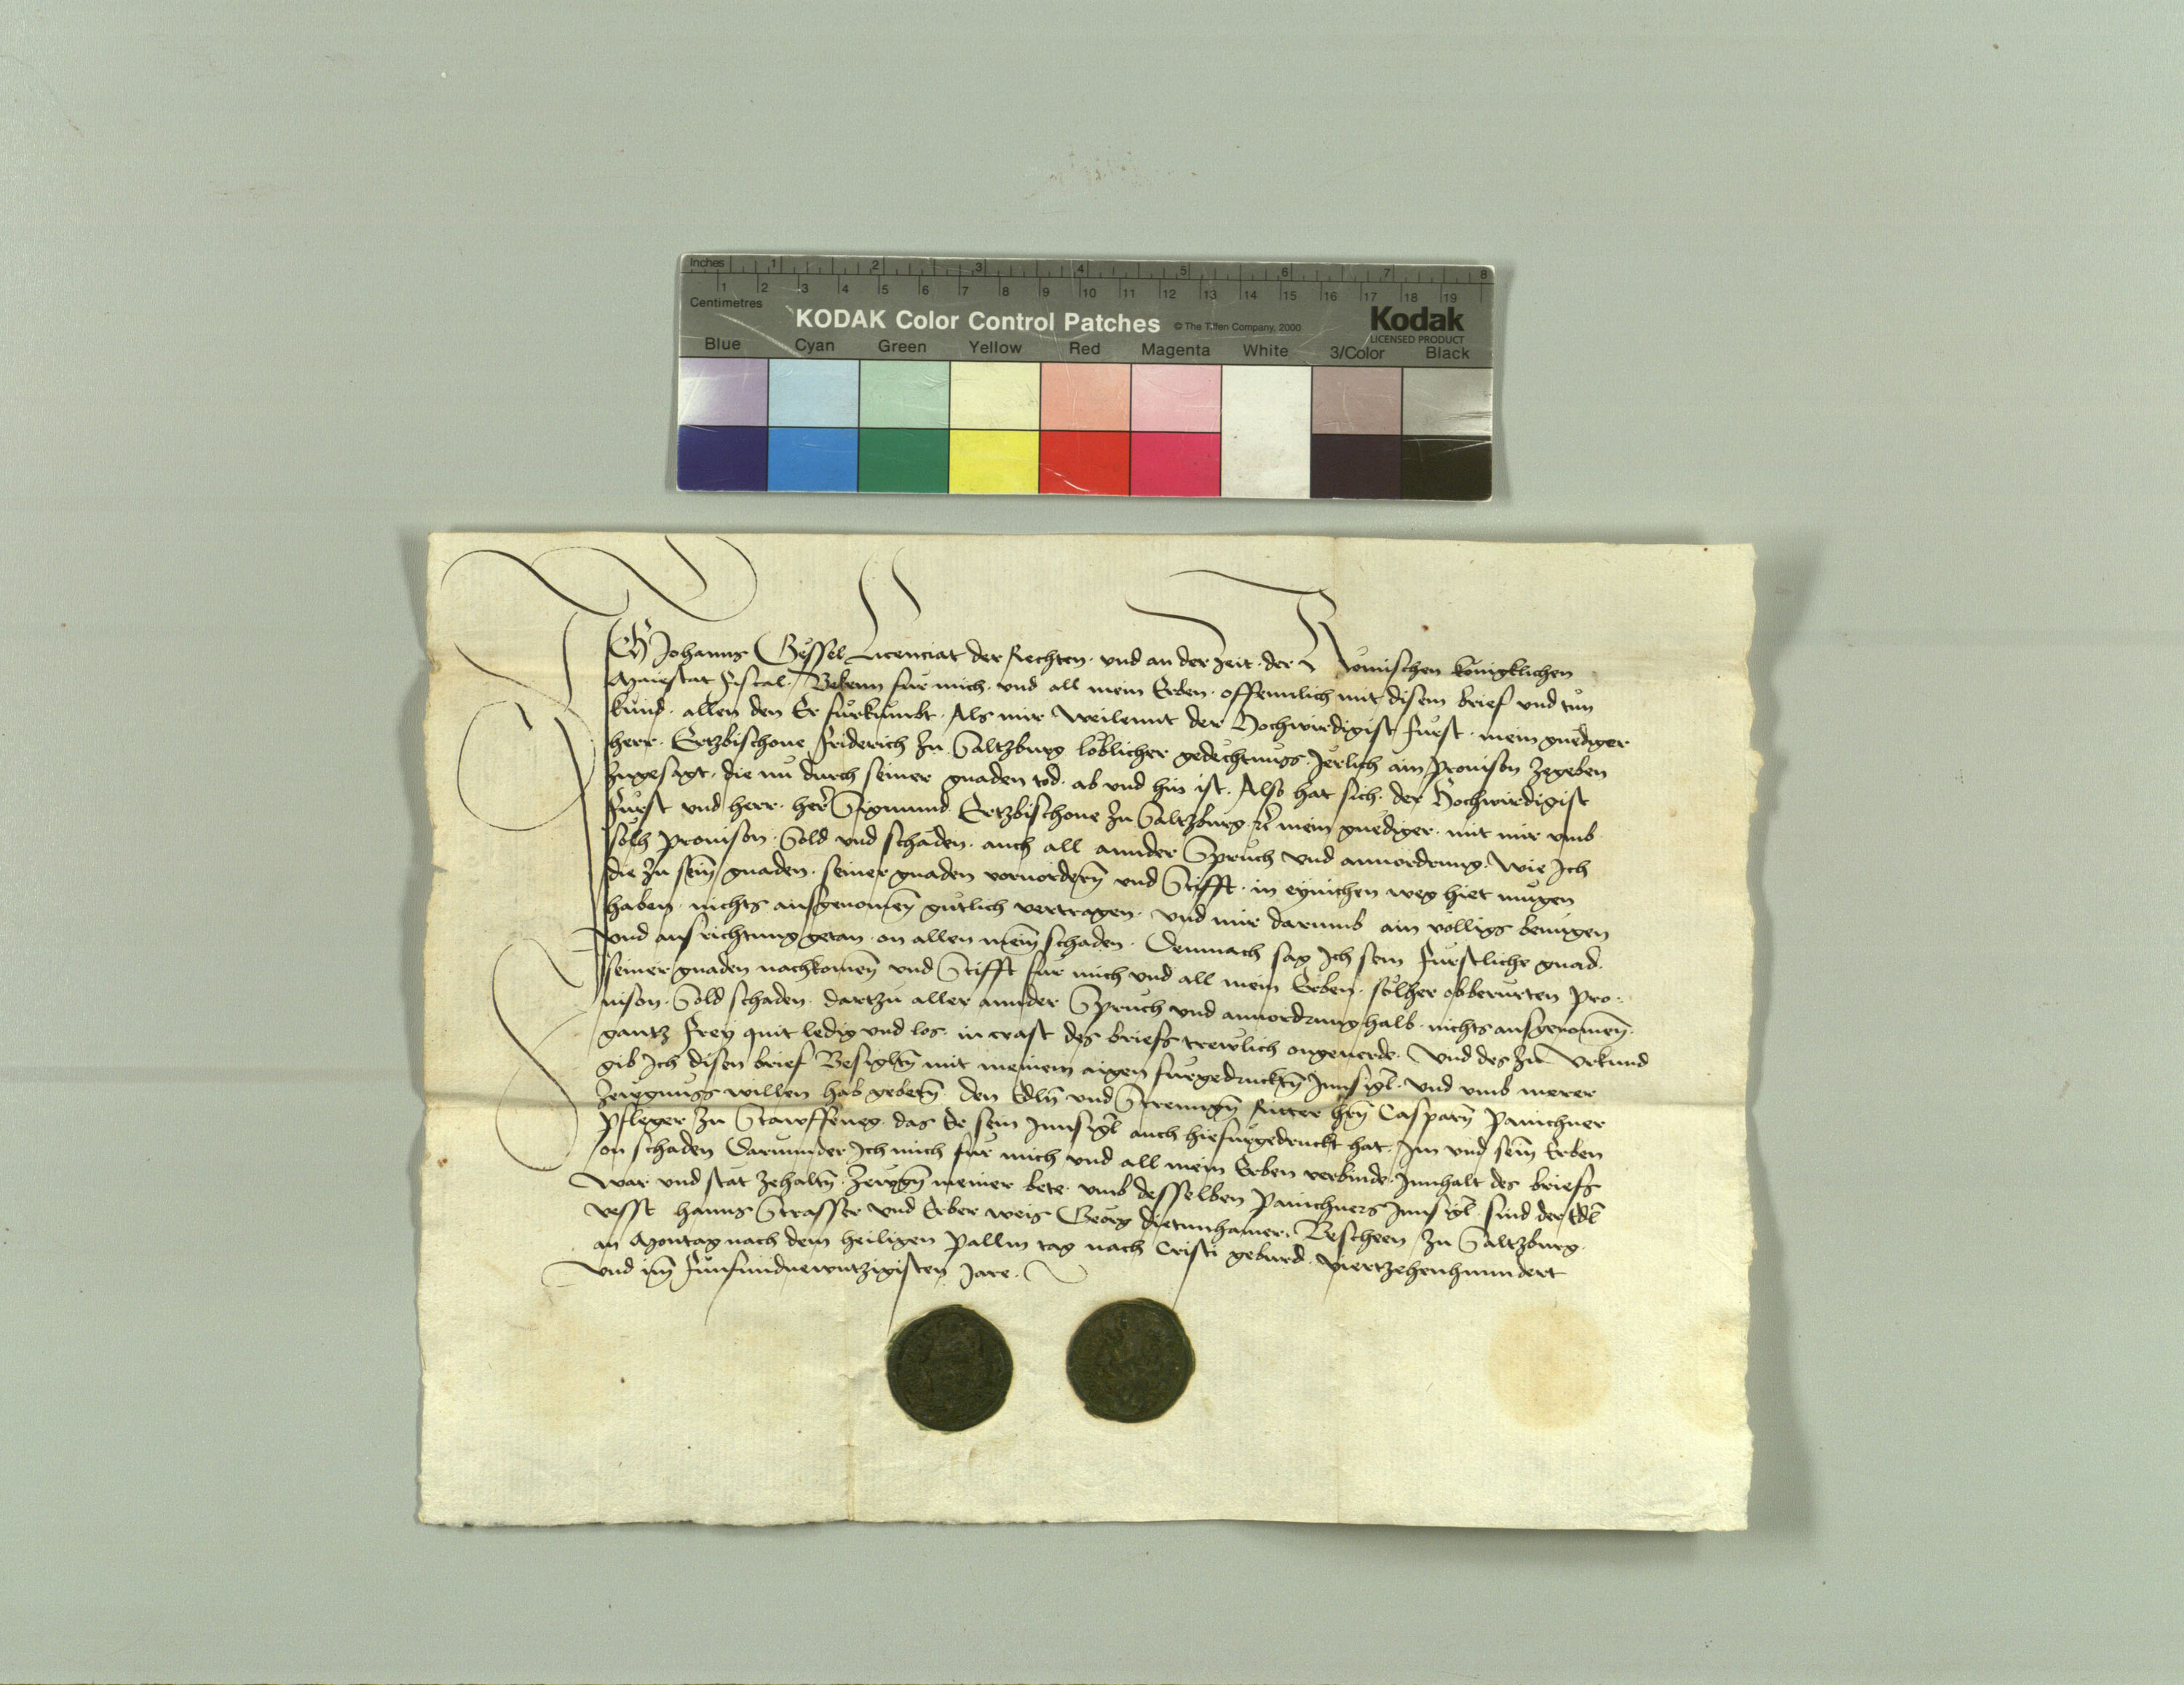 Inches 1 2 3 4 5 6 7 8
1 2 3 4 5 6 7 8 9 10 11 12 13 14 15 16 17 18 19
Centimetres
KODAK Color Control Patches © The Tiffen Company, 2000 Kodak
LICENSED PRODUCT
Blue Cyan Green Yellow Red Magenta White 3/Color Black
ICh Johanns Gessel Licenciat der Rechten · und an der Zeit · der Romischen kunigklichen
Maiestat fiscal · Bekenn fur mich · und all mein Erben · offennlich mit disem brief und tůn
kund · allen den Er furkumbt · Als mir Weilennt der Hochwirdigist furst · mein gnediger
herr · Ertzbischoue friderich zu Saltzburg loblicher gedechtnuss · Jerlich ain prouison zegeben
zugesagt · die nu durch seiner gnaden tod · ab und hin ist · Also hat sich · der Hochwirdigist
furst und herr · her Sigmund Ertzbischoue zu Saltzburg ꝛc mein gnediger · mit mir umb
solh prouison · Sold und schaden · auch all annder Spruch und anuordrung · Wie Ich
die zu seim̄ gnaden · seiner gnaden voruordern̄ und Stifft · in eynichen weg hiet mugen
haben · nichts ausgenomen̄ gutlich vertragen · und mir darumb ain volligs benugen
und ausrichtung getan · on allen meim̄ schaden · Demnach sag Ich sein furstliche gnad ·
seiner gnaden nachkomen̄ und Stifft fur mich und all mein Erben · solher obberurten pro-
uison · Sold schaden · dartzu aller annder Spruch und anuordrung halb · nichts ausgenomen̄ ·
gantz frey quit ledig und los · in crafft des briefs trewlich ongeuerde · Und des zu Urkund
gib Ich disen brief Besigltn̄ mit meinem aigen furgedrucktn̄ Innsigl · und umb merer
zeugnuss willen hab gebetn̄ den Edln̄ und Strenngn̄ Ritter hrn̄ Casparn̄ Panichner
pfleger zu Stawffenegg · das Er sein Innsigl auch hiefurgedruckt hat · Im und seim̄ Erben
on schaden Darunnder Ich mich fur mich und all mein Erben verbinde · Innhalt des briefs
war und stat zehaltn̄ · Zeugn̄ meiner bete · umb desselben Panichners Innsigl · sind der Edl
vesst hanns Strasser und Erber weis Georg dietnhamer · Bescheen zu Saltzburg ·
an Montag nach dem heiligen Pallm tag nach Cristi geburd · viertzehenhunndert
und im̄ funfundnewntzigisten Jare ·